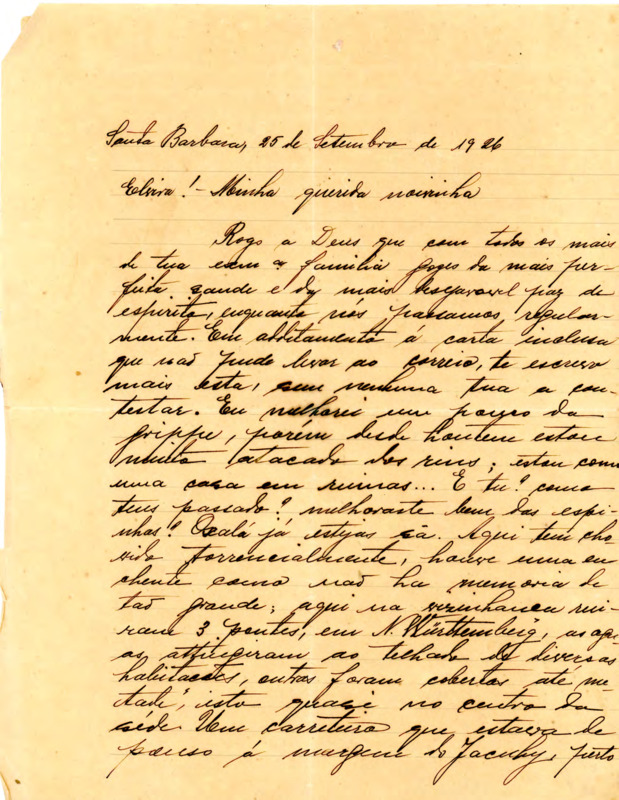 Santa Barbara, 25 de Setembro de 1926
Elvira! - Minha querida noivinha
Rogo a Deus que com todos os mais
de tua exma familia gozes da mais per-
feita saude e da mais desejavel paz de
espirito, enquanto nós passamos regular-
mente. Em additamento á carta inclusa
que naõ pude levar ao correio, te escrevo
mais esta, sem nenhuma tua a con-
testar. Eu melhorei um pouco da
grippe, porém desde hontem estou
muito atacado dos rins; estou como
uma casa em ruinas... E tu? como
tens passado? melhoraste bem das espi-
nhas? Oxalá já estejas sã. Aqui tem cho-
vido torrencialmente, houve uma en
chente como naõ ha memoria de
taõ grande; aqui na vizinhança rui-
ram 3 pontes, em N. Württemberg, as agu-
as, attingiram ao telhado de diversas
habitações, outras foram cobertas até me-
tade, isto quasi no centro da
séde. Um carreteiro que estava de
pouso á margem do Jacuhy, perto